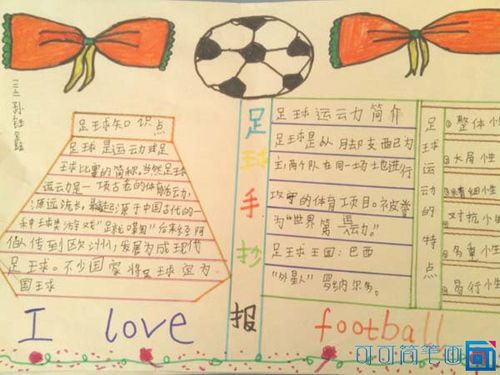 足球知识点
足球是运动球足
球比赛的简称,当然足球
运动是一项古老的体育活动,
源远流长,最起源于中国古代的一
种球类游戏“足就
做传到欧洲,发展为成现代
足球。不少国家将足球定为
国球
足球手抄报
足球运动力简介
足球是从用脚支西己为
主,两个队在同一场地进行
攻守的体育项目。被誉
为“世界第一运动”。
足球王国:巴西
“外星人”罗纳尔多。
足球运动的特点
整体性
对抗性
多变性
易行性
I love
football
可可简笔画